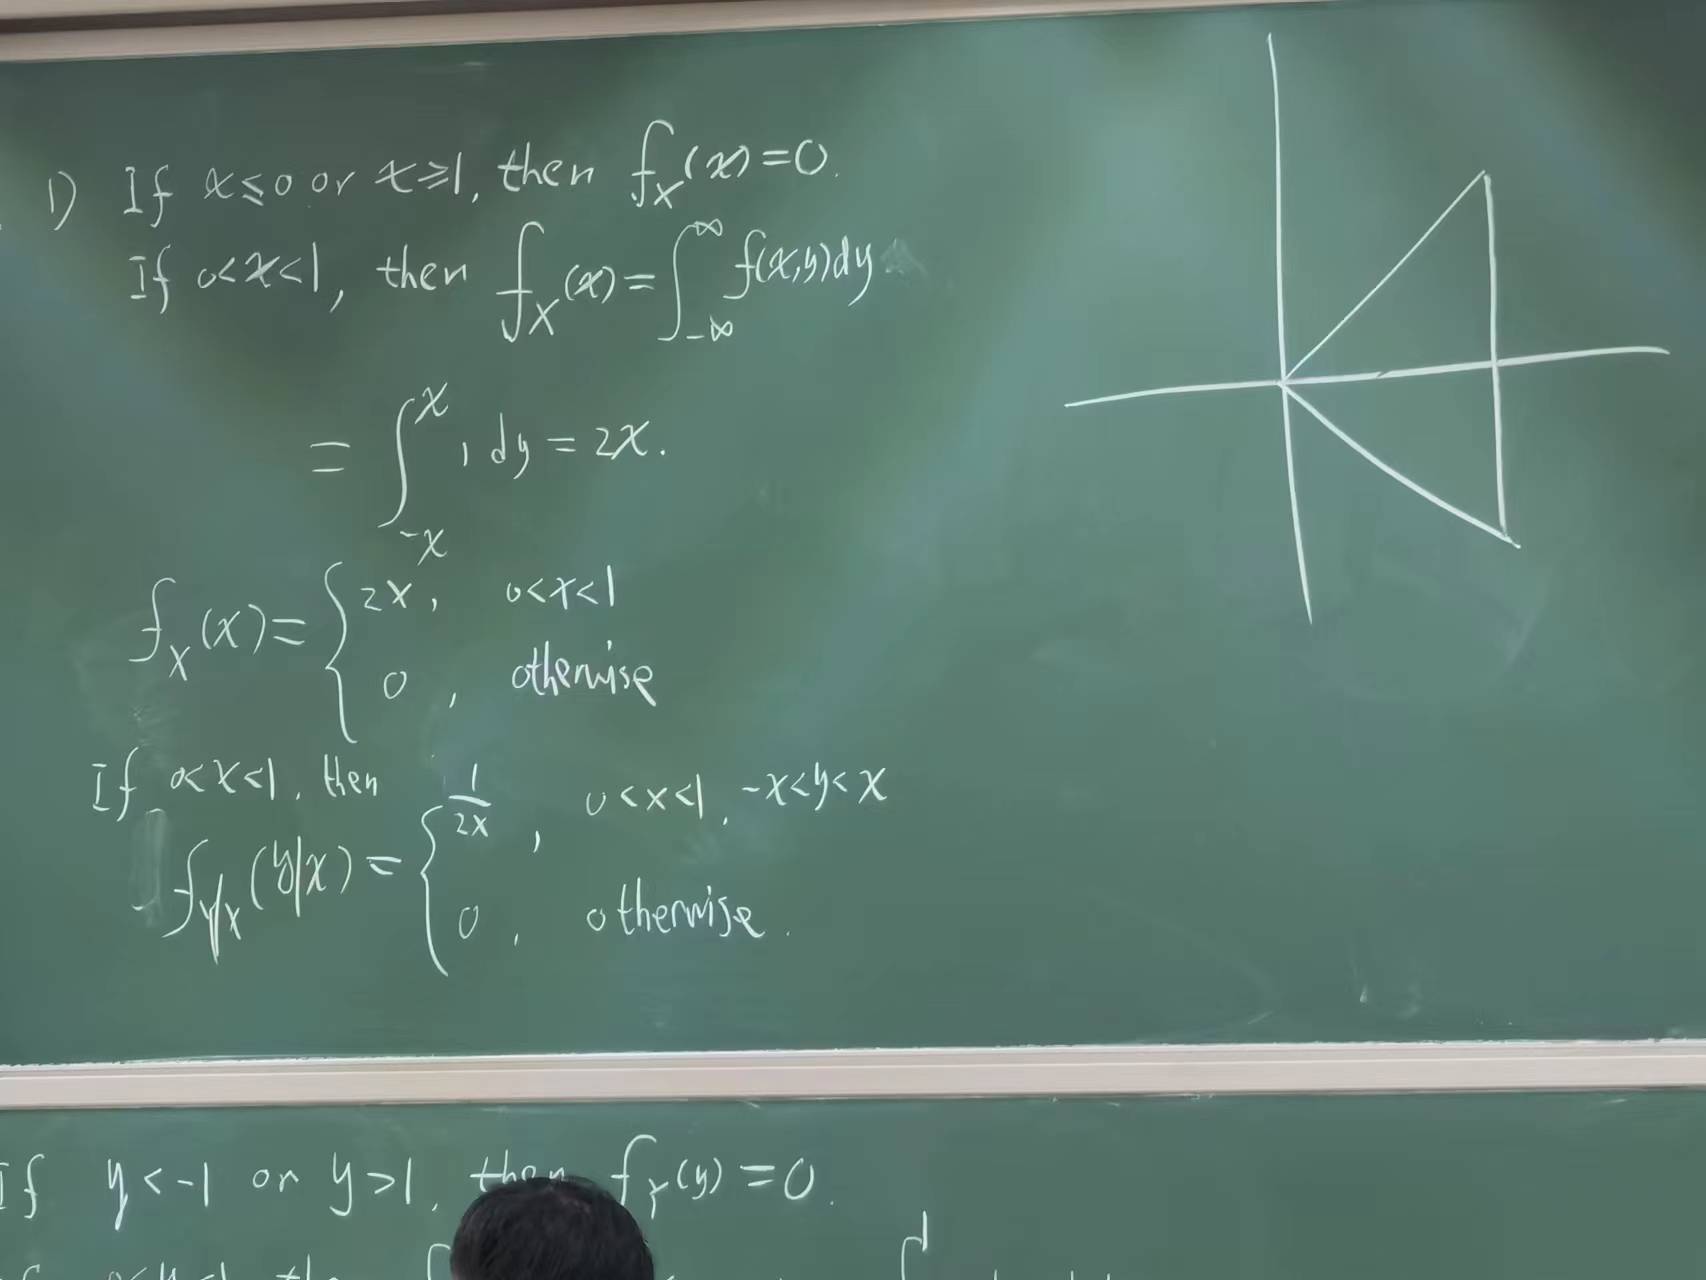 1) If x≤0 or x≥1, then f_X(x)=0.
If 0<x<1, then f_X(x)=∫_{-∞}^{∞} f(x,y)dy
= ∫_{-x}^{x} 1 dy = 2x.
f_X(x)= { 2x, 0<x<1
0, otherwise
If 0<x<1, then
f_{Y|X}(y|x)= { 1/2x, 0<x<1, -x<y<x
0, otherwise.
If y<-1 or y>1, then f_Y(y)=0.